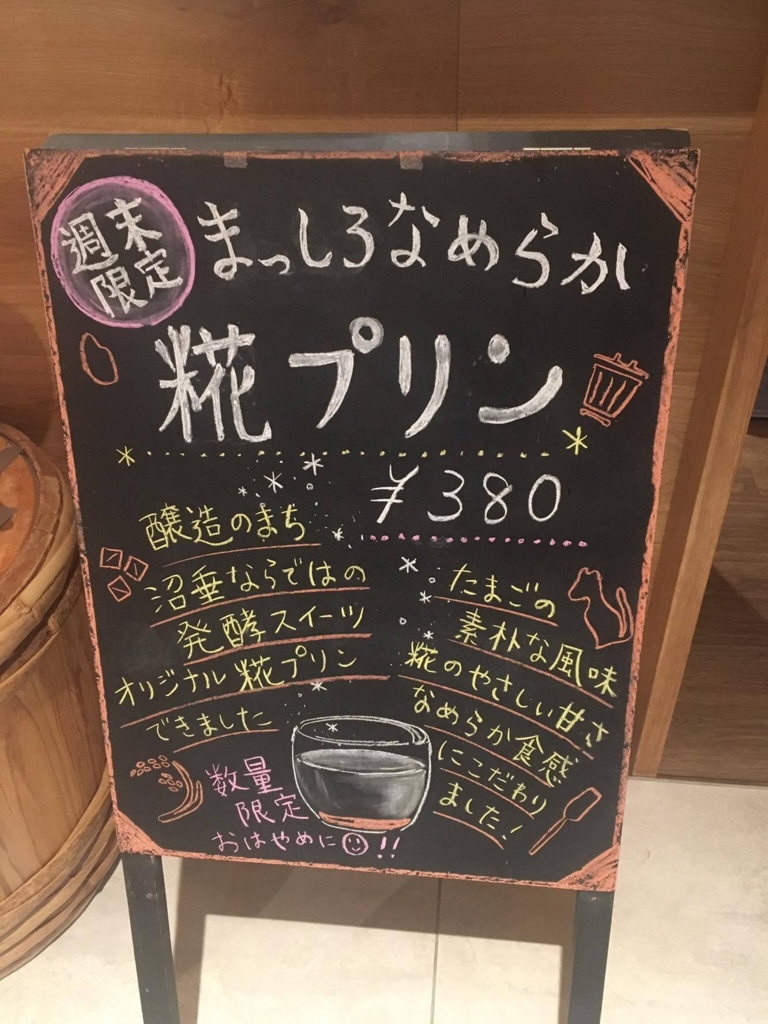 週末
限定
まっしろなめらか
糀プリン
¥380
醸造のまち
沼垂ならではの
発酵スイーツ
オリジナル糀プリン
できました
たまごの
素朴な風味
糀のやさしい甘さ
なめらか食感
にこだわり
ました!
数量
限定
おはやめに☺!!